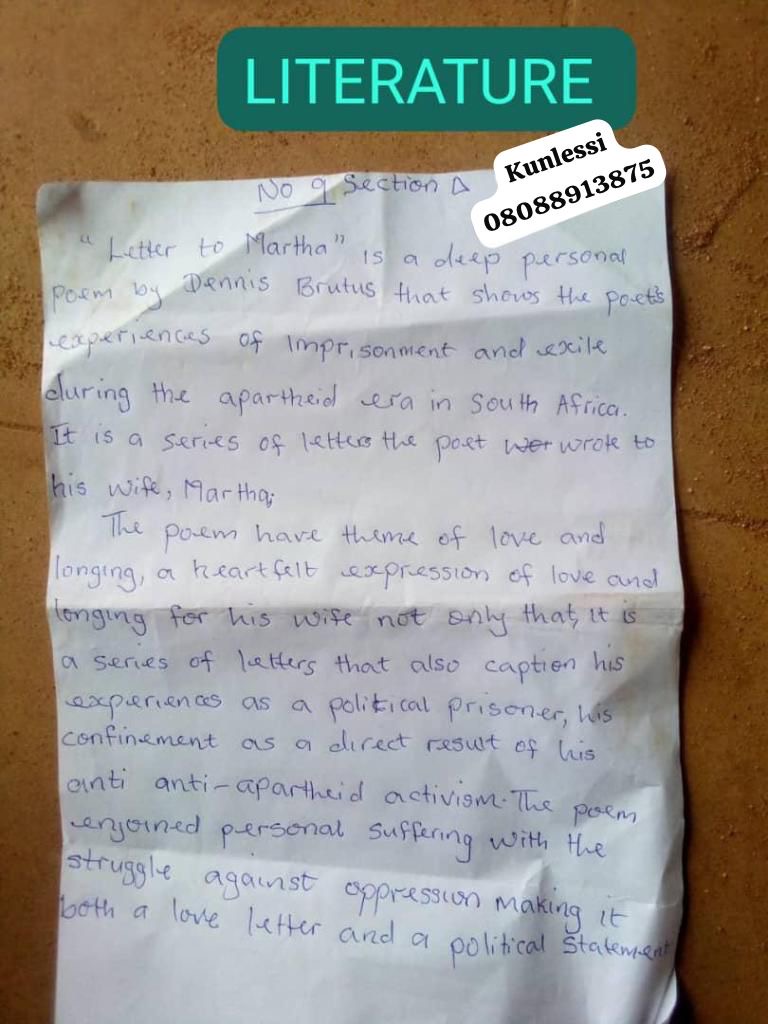 LITERATURE
Kunlessi
08088913875
No 9 Section D
"Letter to Martha" is a deep personal
poem by Dennis Brutus that shows the poet's
experiences of imprisonment and exile
during the apartheid era in South Africa.
It is a series of letters the poet wer wrote to
his wife, Martha;
The poem have theme of love and
longing, a heartfelt expression of love and
longing for his wife not only that, it is
a series of letters that also caption his
experiences as a political prisoner, his
confinement as a direct result of his
anti anti-apartheid activism. The poem
enjoined personal suffering with the
struggle against oppression making it
both a love letter and a political statement